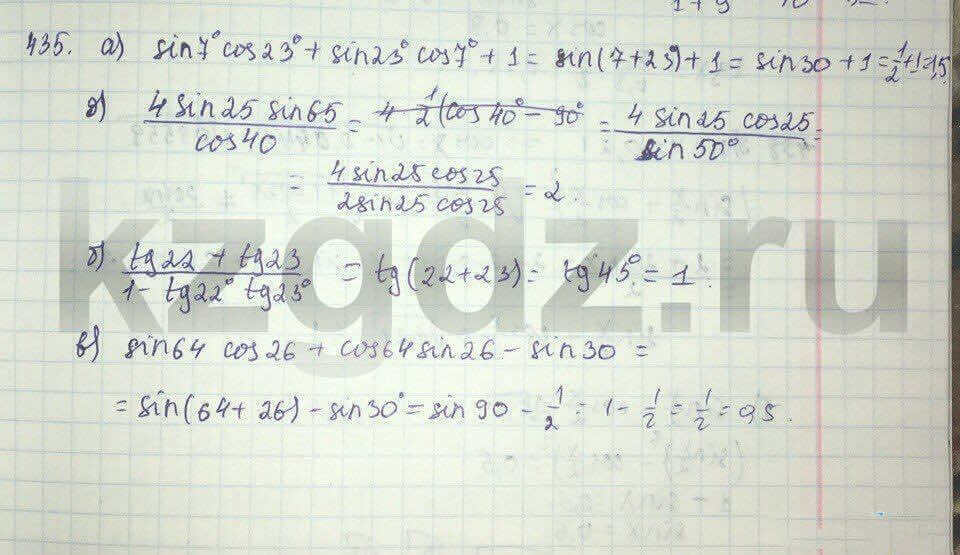 1+9
435. а) sin7° cos23° + sin23° cos7° + 1 = sin(7+23°) + 1 = sin30 + 1 = 1/2 + 1 = 1,5
г) 4 sin25 sin65 / cos40 = 4 1/2 (cos40° - 90° = 4 sin25 cos25 / sin50° =
= 4 sin25 cos25 / 2 sin25 cos25 = 2.
б) tg22 + tg23 / 1 - tg22° tg23° = tg(22+23) = tg45° = 1.
в) sin64 cos26 + cos64 sin26 - sin30 =
= sin(64+26) - sin30° = sin90 - 1/2 = 1 - 1/2 = 1/2 = 0,5.
kzgdz.ru